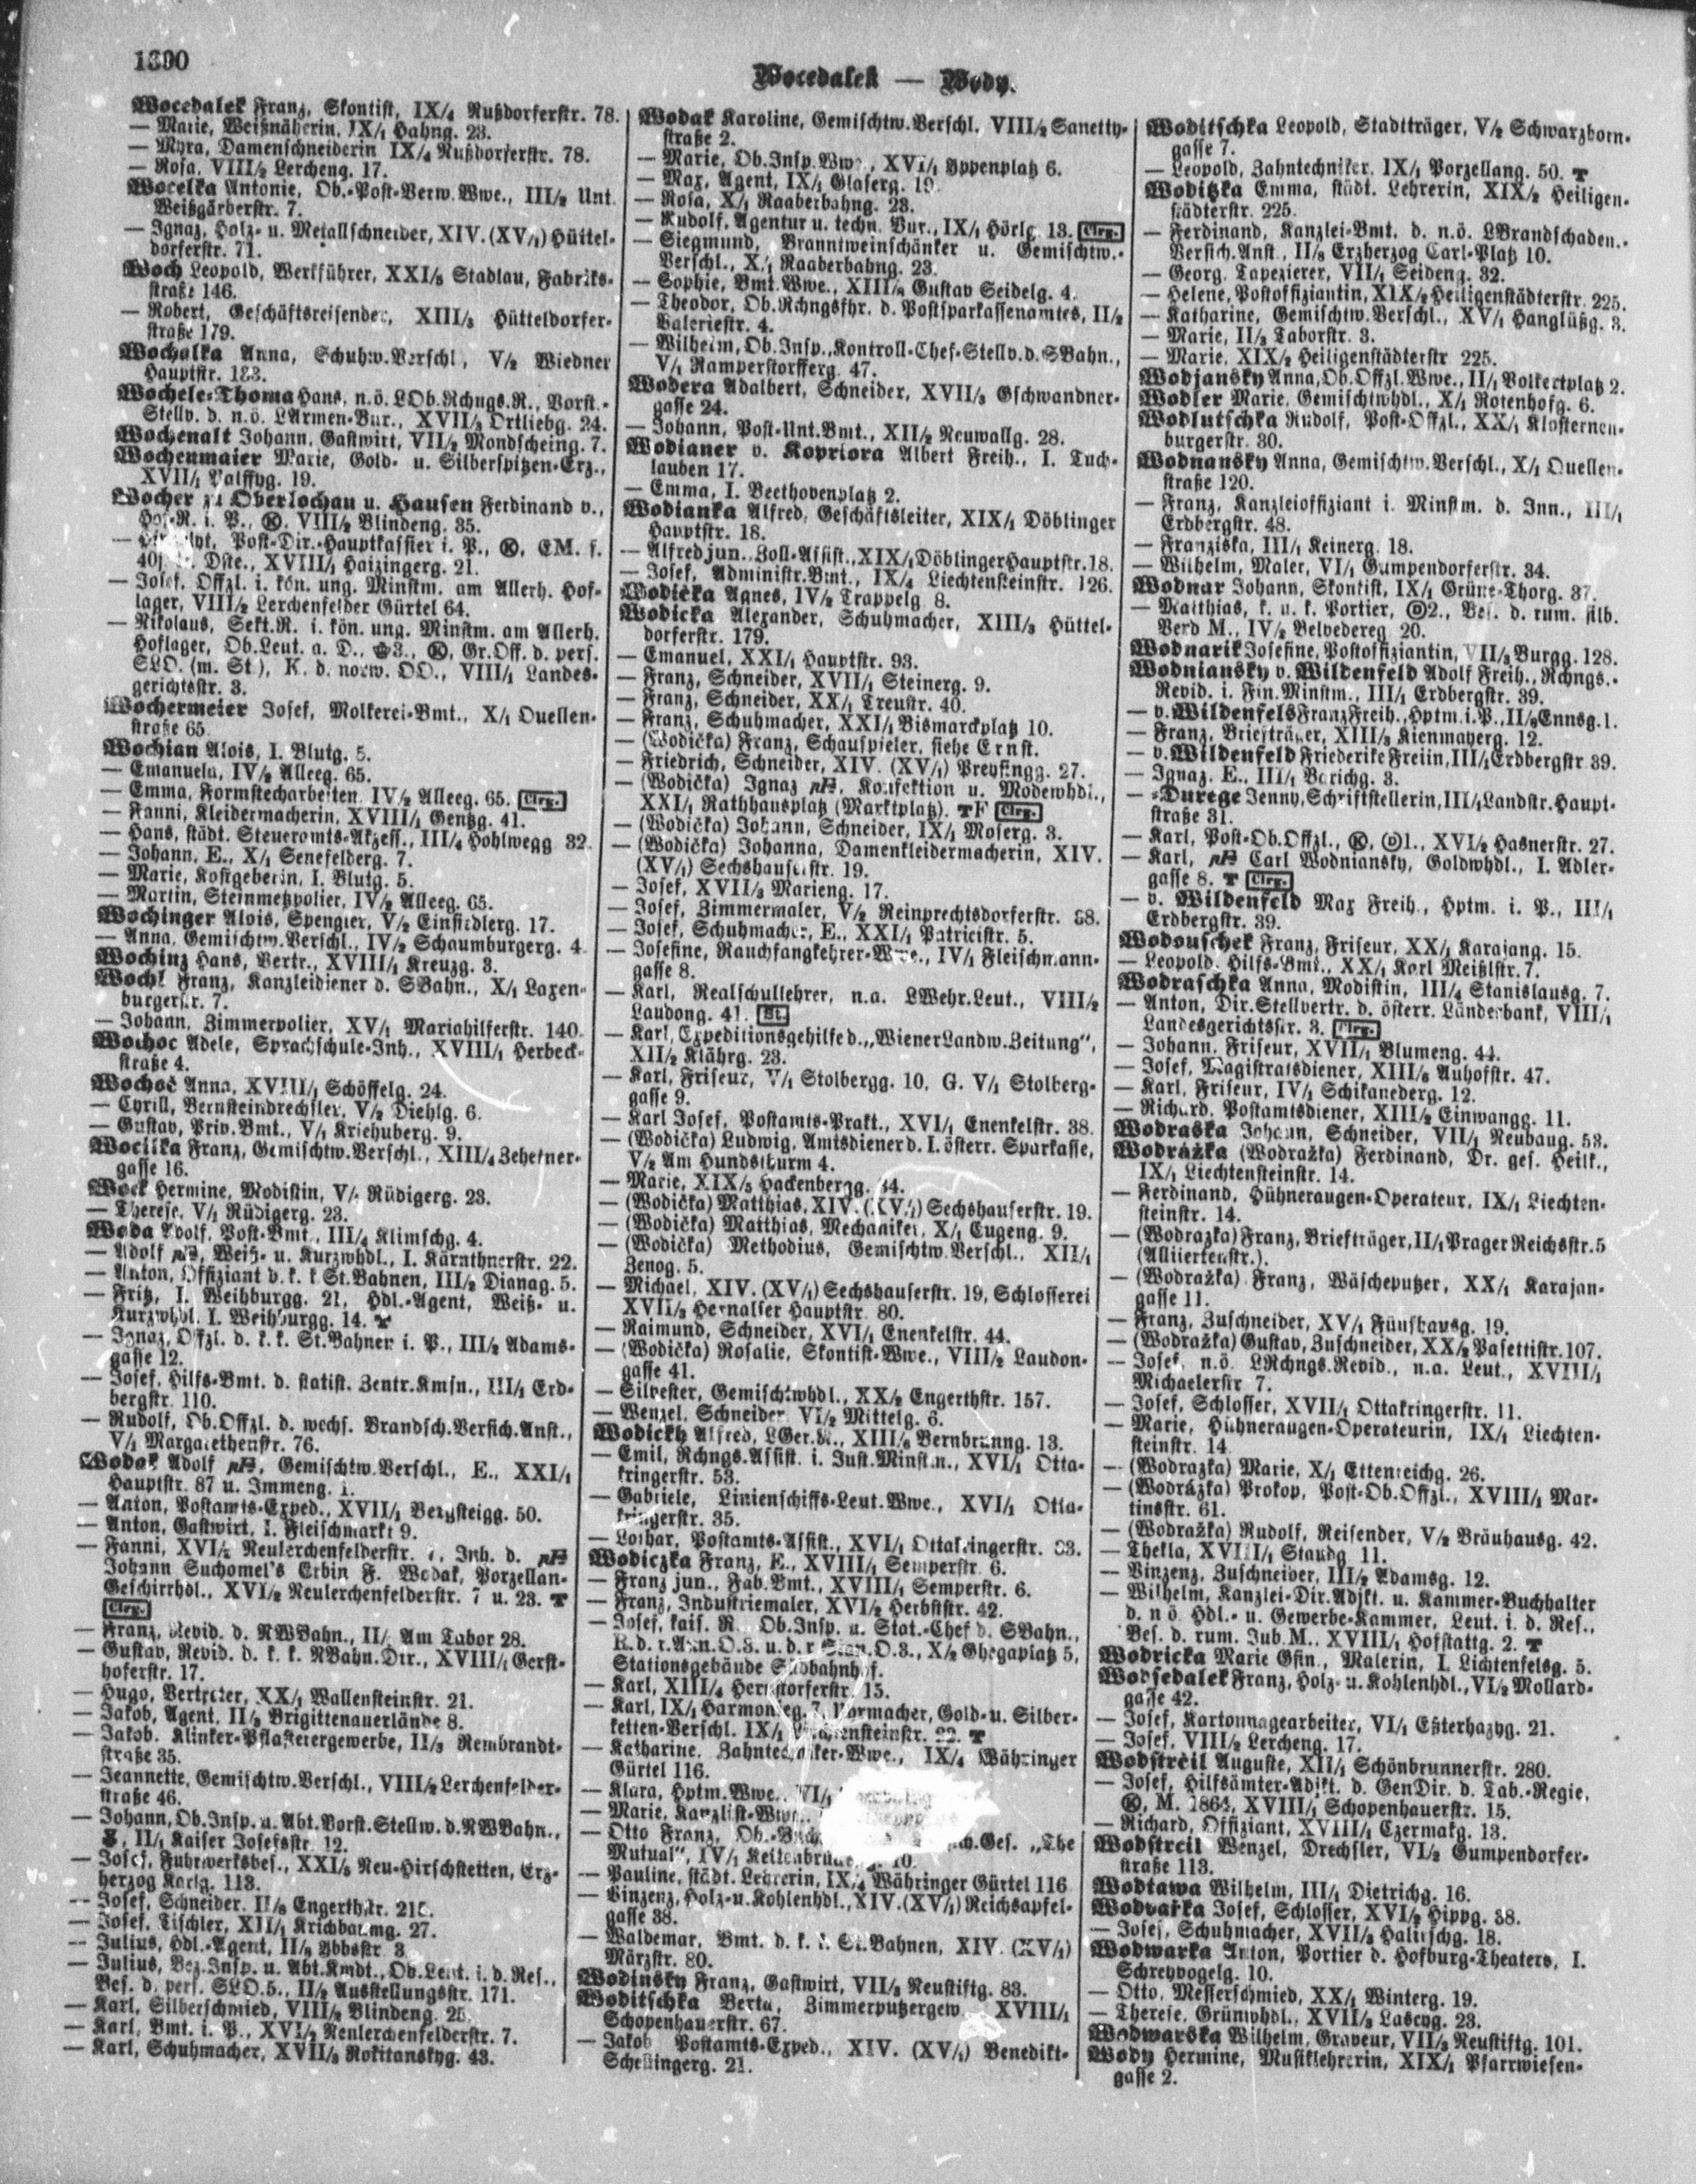 1390
Wocedalek — Wody.
Wocedalek Franz, Skontist, IX/4 Nußdorferstr. 78.
— Marie, Weißnäherin, IX/1 Hahng. 23.
— Myra, Damenschneiderin IX/4 Nußdorferstr. 78.
— Rosa, VIII/2 Lercheng. 17.
Wocelka Antonie, Ob.-Post-Verw. Wwe., III/2 Unt.
Weißgärberstr. 7.
— Ignaz, Holz- u. Metallschneider, XIV. (XV/1) Hüttel-
dorferstr. 71.
Woch Leopold, Werkführer, XXI/5 Stadlau, Fabriks-
straße 146.
— Robert, Geschäftsreisender, XIII/3 Hütteldorfer-
straße 179.
Wochalka Anna, Schuhw. Verschl, V/2 Wiedner
Hauptstr. 133.
Wochele-Thoma Hans, n.ö. LOb. Rchngs. R., Vorst.-
Stellv. d. n.ö. LArmen-Bur., XVII/3 Ortliebg. 24.
Wochenalt Johann, Gastwirt, VII/2 Mondscheing. 7.
Wochenmaier Marie, Gold- u. Silberspitzen-Erz.,
XVII/1 Palffyg. 19.
Wocher zu Oberlochau u. Hausen Ferdinand v.,
Hof-R. i. P., Ⓚ. VIII/2 Blindeng. 35.
— Post-Dir.-Hauptkassier i. P., Ⓚ, EM. f.
40j. Dste., XVIII/1 Haizingerg. 21.
— Josef. Offzl. i. kön. ung. Minstm. am Allerh. Hof-
lager, VIII/2 Lerchenfelder Gürtel 64.
— Nikolaus, Sekt. R. i. kön. ung. Minstm. am Allerh.
Hoflager, Ob. Leut. a. D., 3., Ⓚ, Gr. Off. d. pers.
SLO. (m. St.), K. d. norw. OO., VIII/1 Landes-
gerichtsstr. 3.
Wochermeier Josef, Molkerei-Bmt., X/1 Quellen-
straße 65.
Wochian Alois, I. Blutg. 5.
— Emanuela, IV/2 Alleeg. 65.
— Emma, Formstecharbeiten, IV/2 Alleeg. 65. Clrg.
— Fanni, Kleidermacherin, XVIII/1 Gentzg. 41.
— Hans, städt. Steueramts-Akzess., III/4 Hohlwegg 32.
— Johann, E., X/1 Senefelderg. 7.
— Marie, Kostgeberin, I. Blutg. 5.
— Martin, Steinmetzpolier, IV/2 Alleeg. 65.
Wochinger Alois, Spengler, V/2 Einsiedlerg. 17.
— Anna, Gemischtw. Verschl., IV/2 Schaumburgerg. 4.
Wochinz Hans, Vertr., XVIII/1 Kreuzg. 3.
Wochl Franz, Kanzleidiener d. SBahn., X/1 Laxen-
burgerstr. 7.
— Johann, Zimmerpolier, XV/1 Mariahilferstr. 140.
Wochoc Adele, Sprachschule-Inh., XVIII/1 Herbeck-
straße 4.
Wochoč Anna, XVIII/1 Schöffelg. 24.
— Cyrill, Bernsteindrechsler, V/2 Diehlg. 6.
— Gustav, Priv. Bmt., V/1 Kriehuberg. 9.
Wocilka Franz, Gemischtw. Verschl., XIII/4 Zehetner-
gasse 16.
Wock Hermine, Modistin, V/1 Rüdigerg. 23.
— Therese, V/1 Rüdigerg. 23.
Woda Adolf, Post-Bmt., III/4 Klimschg. 4.
— Adolf, Weiß- u. Kurzwhdl., I. Kärnthnerstr. 22.
— Anton, Offiziant d. k. k. St. Bahnen, III/2 Dianag. 5.
— Fritz, I. Weihburgg. 21, Hdl.-Agent, Weiß- u.
Kurzwhdl. I. Weihburgg. 14. T
— Ignaz, Offzl. d. k. k. St. Bahnen i. P., III/2 Adams-
gasse 12.
— Josef, Hilfs-Bmt. d. statist. Zentr. Kmsn., III/1 Erd-
bergstr. 110.
— Rudolf, Ob. Offzl. d. wechs. Brandsch. Versich. Anst.,
V/1 Margarethenstr. 76.
Wodak Adolf, Gemischtw. Verschl., E., XXI/1
Hauptstr. 87 u. Immeng. 1.
— Anton, Postamts-Exped., XVII/1 Bergsteigg. 50.
— Anton, Gastwirt, I. Fleischmarkt 9.
— Fanni, XVI/2 Neulerchenfelderstr. 7, Inh. d.
Johann Suchomel's Erbin F. Wodak, Porzellan-
Geschirrhdl., XVI/2 Neulerchenfelderstr. 7 u. 23. T
Clrg.
— Franz, Revid. d. NWBahn., II/ Am Tabor 28.
— Gustav, Revid. d. k. k. NBahn. Dir., XVIII/1 Gerst-
hoferstr. 17.
— Hugo, Vertreter, XX/1 Wallensteinstr. 21.
— Jakob, Agent, II/3 Brigittenauerlände 8.
— Jakob, Klinker-Pflasterergewerbe, II/3 Rembrandt-
straße 35.
— Jeannette, Gemischtw. Verschl., VIII/2 Lerchenfelder-
straße 46.
— Johann, Ob. Insp. u. Abt. Vorst. Stellw. d. NWBahn.,
II/1 Kaiser Josefsstr. 12.
— Josef, Fuhrwerksbes., XXI/5 Neu-Hirschstetten, Erz-
herzog Karlg. 113.
— Josef, Schneider, II/3 Engerthstr.
— Josef, Tischler, XII/1 Krichbaumg. 27.
— Julius, Hdl.-Agent, II/3 Ybbsstr. 3.
— Julius, Bez. Insp. u. Abt. Kmdt., Ob. Leut. i. d. Res.,
Bes. d. pers. SLO.5., II/2 Ausstellungsstr. 171.
— Karl, Silberschmied, VIII/2 Blindeng. 25.
— Karl, Bmt. i. P., XVI/2 Neulerchenfelderstr. 7.
— Karl, Schuhmacher, XVII/3 Rokitanskyg. 43.
Wodak Karoline, Gemischtw. Verschl. VIII/2 Sanetty-
straße 2.
— Marie, Ob. Insp. Wwe., XVI/1 Yppenplatz 6.
— Max, Agent, IX/1 Glaserg. 19.
— Rosa, X/1 Raaberbahng. 23.
— Rudolf, Agentur u. techn. Bur., IX/1 Hörlg. 13. Clrg.
— Siegmund, Branntweinschänker u. Gemischtw.-
Verschl., X/1 Raaberbahng. 23.
— Sophie, Bmt. Wwe., XIII/2 Gustav Seidelg. 4.
— Theodor, Ob. Rchngsfhr. d. Postsparkassenamtes, II/2
Valeriestr. 4.
— Wilhelm, Ob. Insp., Kontroll-Chef-Stellv. d. SBahn.,
V/1 Ramperstorfferg. 47.
Wodera Adalbert, Schneider, XVII/3 Gschwandner-
gasse 24.
— Johann, Post-Unt. Bmt., XII/2 Neuwallg. 28.
Wodianer v. Kopriora Albert Freih., I. Tuch-
lauben 17.
— Emma, I. Beethovenplatz 2.
Wodianka Alfred, Geschäftsleiter, XIX/1 Döblinger
Hauptstr. 18.
— Alfred jun., Zoll-Assist., XIX/1 Döblinger Hauptstr. 18.
— Josef, Administr. Bmt., IX/4 Liechtensteinstr. 126.
Wodička Agnes, IV/2 Trappelg. 8.
Wodicka Alexander, Schuhmacher, XIII/3 Hüttel-
dorferstr. 179.
— Emanuel, XXI/1 Hauptstr. 93.
— Franz, Schneider, XVII/1 Steinerg. 9.
— Franz, Schneider, XX/1 Treustr. 40.
— Franz, Schuhmacher, XXI/1 Bismarckplatz 10.
— (Wodička) Franz, Schauspieler, siehe Ernst.
— Friedrich, Schneider, XIV. (XV/1) Preysingg. 27.
— (Wodička) Ignaz, Konfektion u. Modewhdl.,
XXI/1 Rathhausplatz (Marktplatz). TF Clrg.
— (Wodička) Johann, Schneider, IX/1 Moserg. 3.
— (Wodička) Johanna, Damenkleidermacherin, XIV.
(XV/1) Sechshauserstr. 19.
— Josef, XVII/3 Marieng. 17.
— Josef, Zimmermaler, V/2 Reinprechtsdorferstr. 38.
— Josef, Schuhmacher, E., XXI/1 Patricistr. 5.
— Josefine, Rauchfangkehrer-Wwe., IV/1 Fleischmann-
gasse 8.
— Karl, Realschullehrer, n.a. LWehr. Leut., VIII/2
Laudong. 41. St.
— Karl, Expeditionsgehilfe d. „Wiener Landw. Zeitung",
XII/2 Klährg. 23.
— Karl, Friseur, V/1 Stolbergg. 10, G. V/1 Stolberg-
gasse 9.
— Karl Josef, Postamts-Prakt., XVI/1 Enenkelstr. 38.
— (Wodička) Ludwig, Amtsdiener d. I. österr. Sparkasse,
V/2 Am Hundsthurm 4.
— Marie, XIX/3 Hackenbergg. 34.
— (Wodička) Matthias, XIV. (XV/1) Sechshauserstr. 19.
— (Wodička) Matthias, Mechaniker, X/1 Eugeng. 9.
— (Wodička) Methodius, Gemischtw. Verschl., XII/1
Zenog. 5.
— Michael, XIV. (XV/1) Sechshauserstr. 19, Schlosserei
XVII/3 Hernalser Hauptstr. 80.
— Raimund, Schneider, XVI/1 Enenkelstr. 44.
— (Wodička) Rosalie, Skontist-Wwe., VIII/2 Laudon-
gasse 41.
— Silvester, Gemischtwhdl., XX/2 Engerthstr. 157.
— Wenzel, Schneider, VI/2 Mittelg. 6.
Wodickh Alfred, LGer. R., XIII/8 Bernbrunng. 13.
— Emil, Rchngs. Assist. i. Just. Minstm., XVI/1 Otta-
kringerstr. 53.
— Gabriele, Linienschiffs-Leut. Wwe., XVI/1 Otta-
kringerstr. 35.
— Lothar, Postamts-Assist., XVI/1 Ottakringerstr. 33.
Wodiczka Franz, E., XVIII/1 Semperstr. 6.
— Franz jun., Fab. Bmt., XVIII/1 Semperstr. 6.
— Franz, Industriemaler, XVI/2 Herbststr. 42.
— Josef, kais. R. Ob. Insp. u. Stat.-Chef d. SBahn.,
R. d. r. Ann. O.3. u. d. r. Stan. O.3., X/2 Ghegaplatz 5,
Stationsgebäude Südbahnhof.
— Karl, XIII/4 Hernstorferstr. 15.
— Karl, IX/1 Harmonieg. 7, Formacher, Gold- u. Silber-
ketten-Verschl. IX/1 Liechtensteinstr. 22. T
— Katharine, Zahntechniker-Wwe., IX/4 Währinger
Gürtel 116.
— Klara, Hptm. Wwe., VI/1
— Marie, Kanzlist-Wwe.
— Otto Franz, Ob.-Buch ch. Ges. „The
Mutual", IV/1 Kettenbrückeng. 10.
— Pauline, städt. Lehrerin, IX/4 Währinger Gürtel 116
— Vinzenz, Holz- u. Kohlenhdl., XIV. (XV/1) Reichsapfel-
gasse 38.
— Waldemar, Bmt. d. k. k. St. Bahnen, XIV. (XV/1)
Märzstr. 80.
Wodinsky Franz, Gastwirt, VII/3 Neustiftg. 83.
Woditschka Berta, Zimmerputzergew. XVIII/1
Schopenhauerstr. 67.
— Jakob Postamts-Exped., XIV. (XV/1) Benedikt-
Schellingerg. 21.
Woditschka Leopold, Stadtträger, V/2 Schwarzhorn-
gasse 7.
— Leopold, Zahntechniker, IX/1 Porzellang. 50. T
Woditzka Emma, städt. Lehrerin, XIX/2 Heiligen-
städterstr. 225.
— Ferdinand, Kanzlei-Bmt. d. n.ö. LBrandschaden.-
Versich. Anst., II/8 Erzherzog Carl-Platz 10.
— Georg, Tapezierer, VII/1 Seideng. 32.
— Helene, Postoffiziantin, XIX/2 Heiligenstädterstr. 225.
— Katharine, Gemischtw. Verschl., XV/1 Hanglüßg. 3.
— Marie, II/3 Taborstr. 3.
— Marie, XIX/2 Heiligenstädterstr 225.
Wodjansky Anna, Ob. Offzl. Wwe., II/1 Volkertplatz 2.
Wodler Marie, Gemischtwhdl., X/1 Rotenhofg. 6.
Wodlutschka Rudolf, Post-Offzl., XX/1 Klosterneu-
burgerstr. 30.
Wodnansky Anna, Gemischtw. Verschl., X/1 Quellen-
straße 120.
— Franz, Kanzleioffiziant i. Minstm. d. Inn., III/1
Erdbergstr. 48.
— Franziska, III/1 Keinerg. 18.
— Wilhelm, Maler, VI/1 Gumpendorferstr. 34.
Wodnar Johann, Skontist, IX/1 Grüne-Thorg. 37.
— Matthias, k. u. k. Portier, 2., Bes. d. rum. silb.
Verd M., IV/2 Belvedereg 20.
Wodnarik Josefine, Postoffiziantin, VII/3 Burgg. 128.
Wodniansky v. Wildenfeld Adolf Freih., Rchngs.-
Revid. i. Fin. Minstm., III/1 Erdbergstr. 39.
— v. Wildenfels Franz Freih., Hptm. i. P., II/3 Ennsg. 1.
— Franz, Briefträger, XIII/3 Kienmayerg. 12.
— v. Wildenfeld Friederike Freiin, III/1 Erdbergstr 39.
— Ignaz, E., III/1 Barichg. 3.
— -Durege Jenny, Schriftstellerin, III/1 Landstr. Haupt-
straße 31.
— Karl, Post-Ob. Offzl., Ⓚ, 1., XVI/2 Hasnerstr. 27.
— Karl, Carl Wodniansky, Goldwhdl., I. Adler-
gasse 8. T Clrg.
— v. Wildenfeld Max Freih., Hptm. i. P., III/1
Erdbergstr. 39.
Wodouschek Franz, Friseur, XX/1 Karajang. 15.
— Leopold, Hilfs-Bmt., XX/1 Karl Meißlstr. 7.
Wodraschka Anna, Modistin, III/4 Stanislausg. 7.
— Anton, Dir. Stellvertr. d. österr. Länderbank, VIII/1
Landesgerichtsstr. 3. Clrg.
— Johann, Friseur, XVII/1 Blumeng. 44.
— Josef, Magistratsdiener, XIII/8 Auhofstr. 47.
— Karl, Friseur, IV/1 Schikanederg. 12.
— Richard, Postamtsdiener, XIII/2 Einwangg. 11.
Wodraska Johann, Schneider, VII/1 Neubaug. 53.
Wodrážka (Wodražka) Ferdinand, Dr. ges. Heilk.,
IX/1 Liechtensteinstr. 14.
— Ferdinand, Hühneraugen-Operateur, IX/1 Liechten-
steinstr. 14.
— (Wodrazka) Franz, Briefträger, II/1 Prager Reichsstr. 5
(Alliiertenstr.).
— (Wodražka) Franz, Wäscheputzer, XX/1 Karajan-
gasse 11.
— Franz, Zuschneider, XV/1 Fünfhausg. 19.
— (Wodražka) Gustav, Zuschneider, XX/2 Pasettistr. 107.
— Josef, n.ö. LRchngs. Revid., n.a. Leut., XVIII/1
Michaelerstr 7.
— Josef, Schlosser, XVII/1 Ottakringerstr. 11.
— Marie, Hühneraugen-Operateurin, IX/1 Liechten-
steinstr. 14.
— (Wodrazka) Marie, X/1 Ettenreichg. 26.
— (Wodrázka) Prokop, Post-Ob. Offzl., XVIII/1 Mar-
tinsstr. 61.
— (Wodražka) Rudolf, Reisender, V/2 Bräuhausg. 42.
— Thekla, XVIII/1 Staudg 11.
— Vinzenz, Zuschneider, III/2 Adamsg. 12.
— Wilhelm, Kanzlei-Dir. Adjkt. u. Kammer-Buchhalter
d. n ö. Hdl.- u. Gewerbe-Kammer, Leut. i. d. Res.,
Bes. d. rum. Jub. M., XVIII/1 Hofstattg. 2. T
Wodricka Marie Gfin., Malerin, I. Lichtenfelsg. 5.
Wodsedalek Franz, Holz- u. Kohlenhdl., VI/2 Mollard-
gasse 42.
— Josef, Kartonnagearbeiter, VI/1 Eßterhazyg. 21.
— Josef, VIII/2 Lercheng. 17.
Wodstrčil Auguste, XII/1 Schönbrunnerstr. 280.
— Josef, Hilfsämter-Adjkt. d. GenDir. d. Tab.-Regie,
Ⓚ, M. 1864, XVIII/1 Schopenhauerstr. 15.
— Richard, Offiziant, XVIII/1 Czermakg. 13.
Wodstrcil Wenzel, Drechsler, VI/2 Gumpendorfer-
straße 113.
Wodtawa Wilhelm, III/1 Dietrichg. 16.
Wodvařka Josef, Schlosser, XVI/2 Hippg. 38.
— Josef, Schuhmacher, XVII/3 Halirschg. 18.
Wodwarka Anton, Portier d. Hofburg-Theaters, I.
Schreyvogelg. 10.
— Otto, Messerschmied, XX/1 Winterg. 19.
— Therese, Grünwhdl., XVII/3 Lascyg. 23.
Wodwarska Wilhelm, Graveur, VII/3 Neustiftg. 101.
Wody Hermine, Musiklehrerin, XIX/1 Pfarrwiesen-
gasse 2.